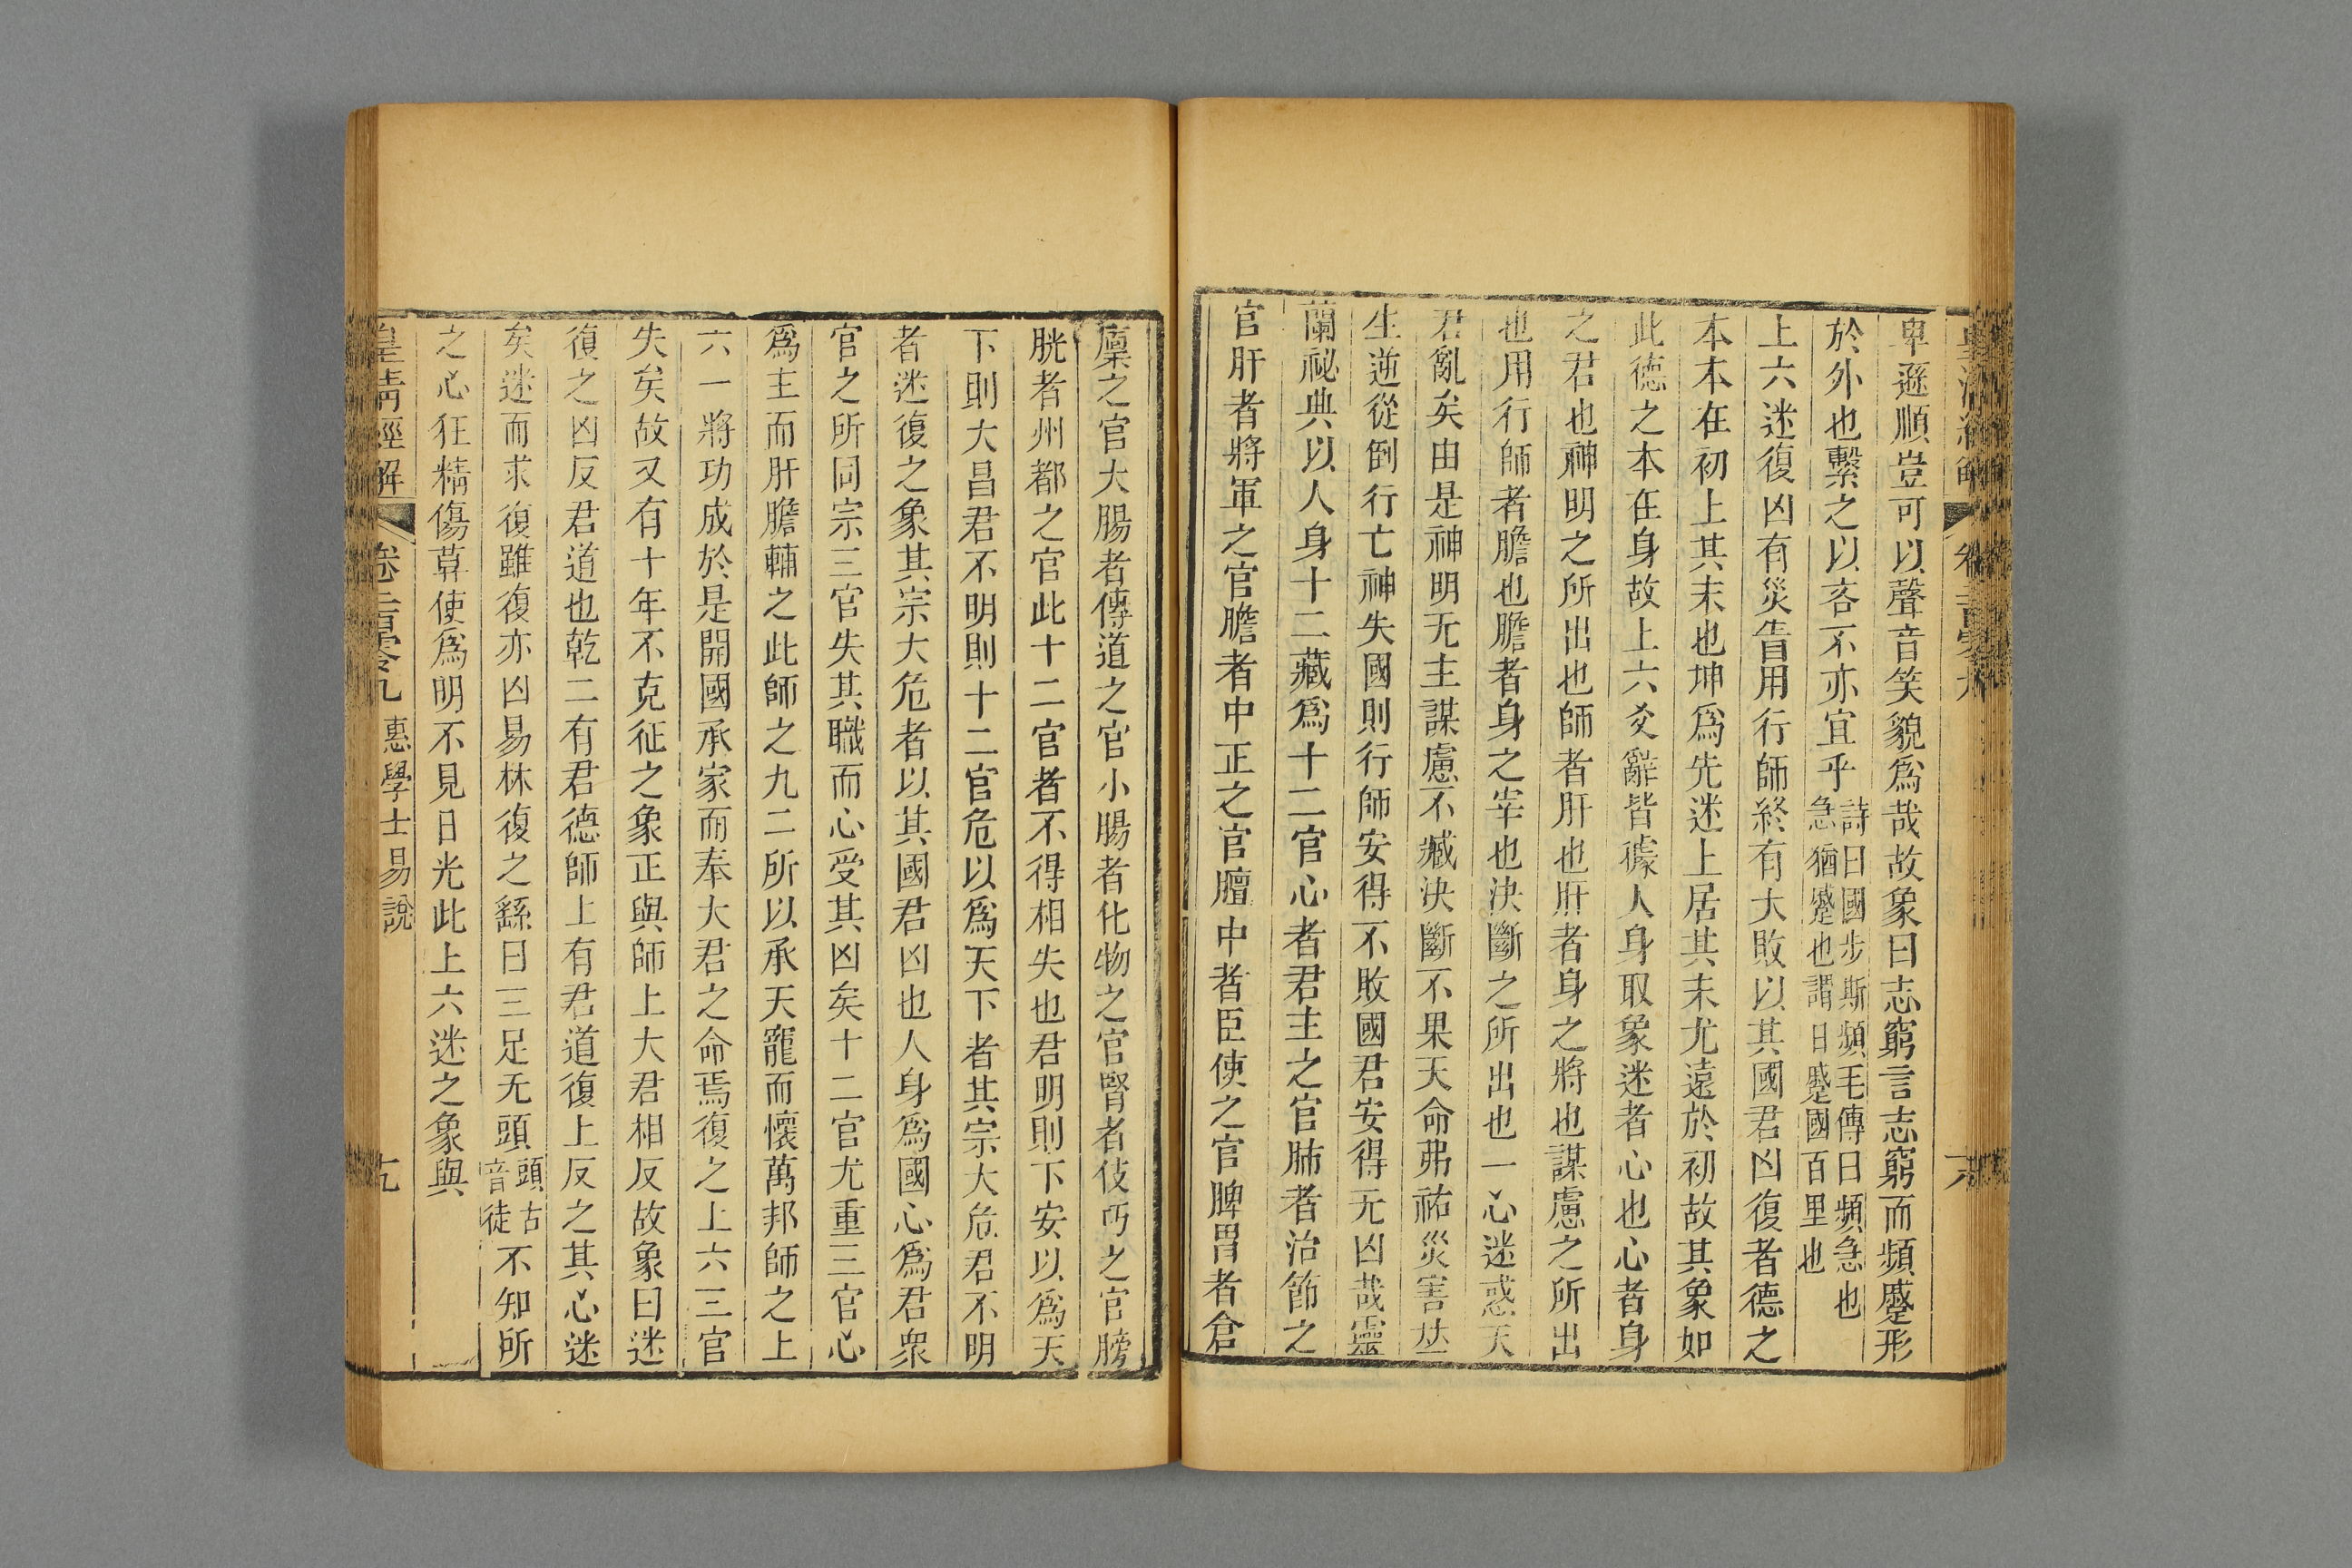 卑遜順豈可以聲音笑貌爲哉故象曰志窮言志窮而頻蹙形
於外也繫之以吝不亦宜乎詩曰國步斯頻毛傳曰頻急也急猶蹙也謂日蹙國百里也
上六迷復凶有災眚用行師終有大敗以其國君凶復者德之
本本在初上其末也坤爲先迷上居其末尤遠於初故其象如
此德之本在身故上六爻辭皆據人身取象迷者心也心者身
之君也神明之所出也師者肝也肝者身之將也謀慮之所出
也用行師者膽也膽者身之宰也決斷之所出也一心迷惑天
君亂矣由是神明无主謀慮不臧決斷不果天命弗祐災害𠀤
生逆從倒行亡神失國則行師安得不敗國君安得无凶哉靈
蘭祕典以人身十二藏爲十二官心者君主之官肺者治節之
官肝者將軍之官膽者中正之官膻中者臣使之官脾胃者倉
廩之官大腸者傳道之官小腸者化物之官腎者伎巧之官膀
胱者州都之官此十二官者不得相失也君明則下安以爲天
下則大昌君不明則十二官危以爲天下者其宗大危君不明
者迷復之象其宗大危者以其國君凶也人身爲國心爲君衆
官之所同宗三官失其職而心受其凶矣十二官尤重三官心
爲主而肝膽輔之此師之九二所以承天寵而懷萬邦師之上
六一將功成於是開國承家而奉大君之命焉復之上六三官
失矣故又有十年不克征之象正與師上大君相反故象曰迷
復之凶反君道也乾二有君德師上有君道復上反之其心迷
矣迷而求復雖復亦凶易林復之繇曰三足无頭頭古音徒不知所
之心狂精傷莫使爲明不見日光此上六迷之象與
皇淸經解 卷二百零九 惠學士易說